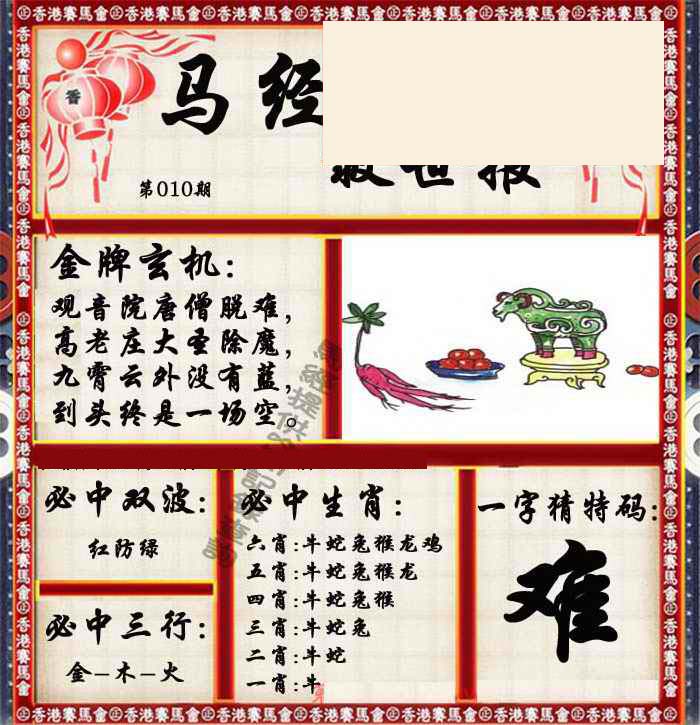 香港賽馬會㊣香港賽馬會㊣香港賽馬會㊣香港賽馬會㊣香港賽馬會㊣香港賽馬會㊣香港賽馬會
香
马经
救世报
第010期
金牌玄机:
观音院唐僧脱难,
高老庄大圣除魔,
九霄云外没有蓝,
到头终是一场空。
必中双波:
红防绿
必中三行:
金-木-火
必中生肖:
六肖:牛蛇兔猴龙鸡
五肖:牛蛇兔猴龙
四肖:牛蛇兔猴
三肖:牛蛇兔
二肖:牛蛇
一肖:牛
一字猜特码:
难